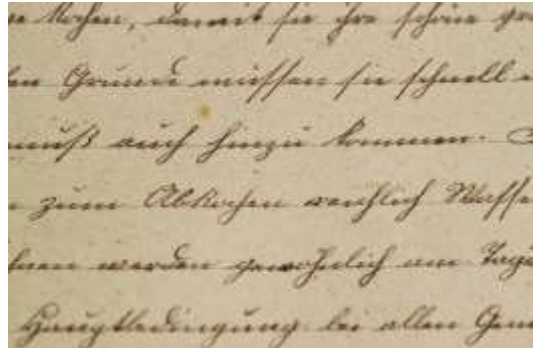 kochen, damit sie ihre schöne
Grunde müssen sie schnell
muß auch hinzu kommen.
zum Abkochen reichlich Wasse
werden gewöhnlich am Tage
Hauptbedingung bei allen Gem